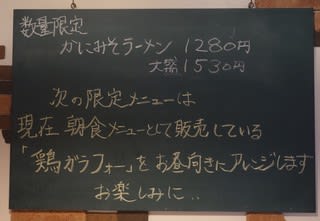 数量限定
かにみそラーメン 1280円
大盛 1530円
次の限定メニューは
現在 朝食メニューとして販売している
「鶏ガラフォー」をお昼向きにアレンジします
お楽しみに..